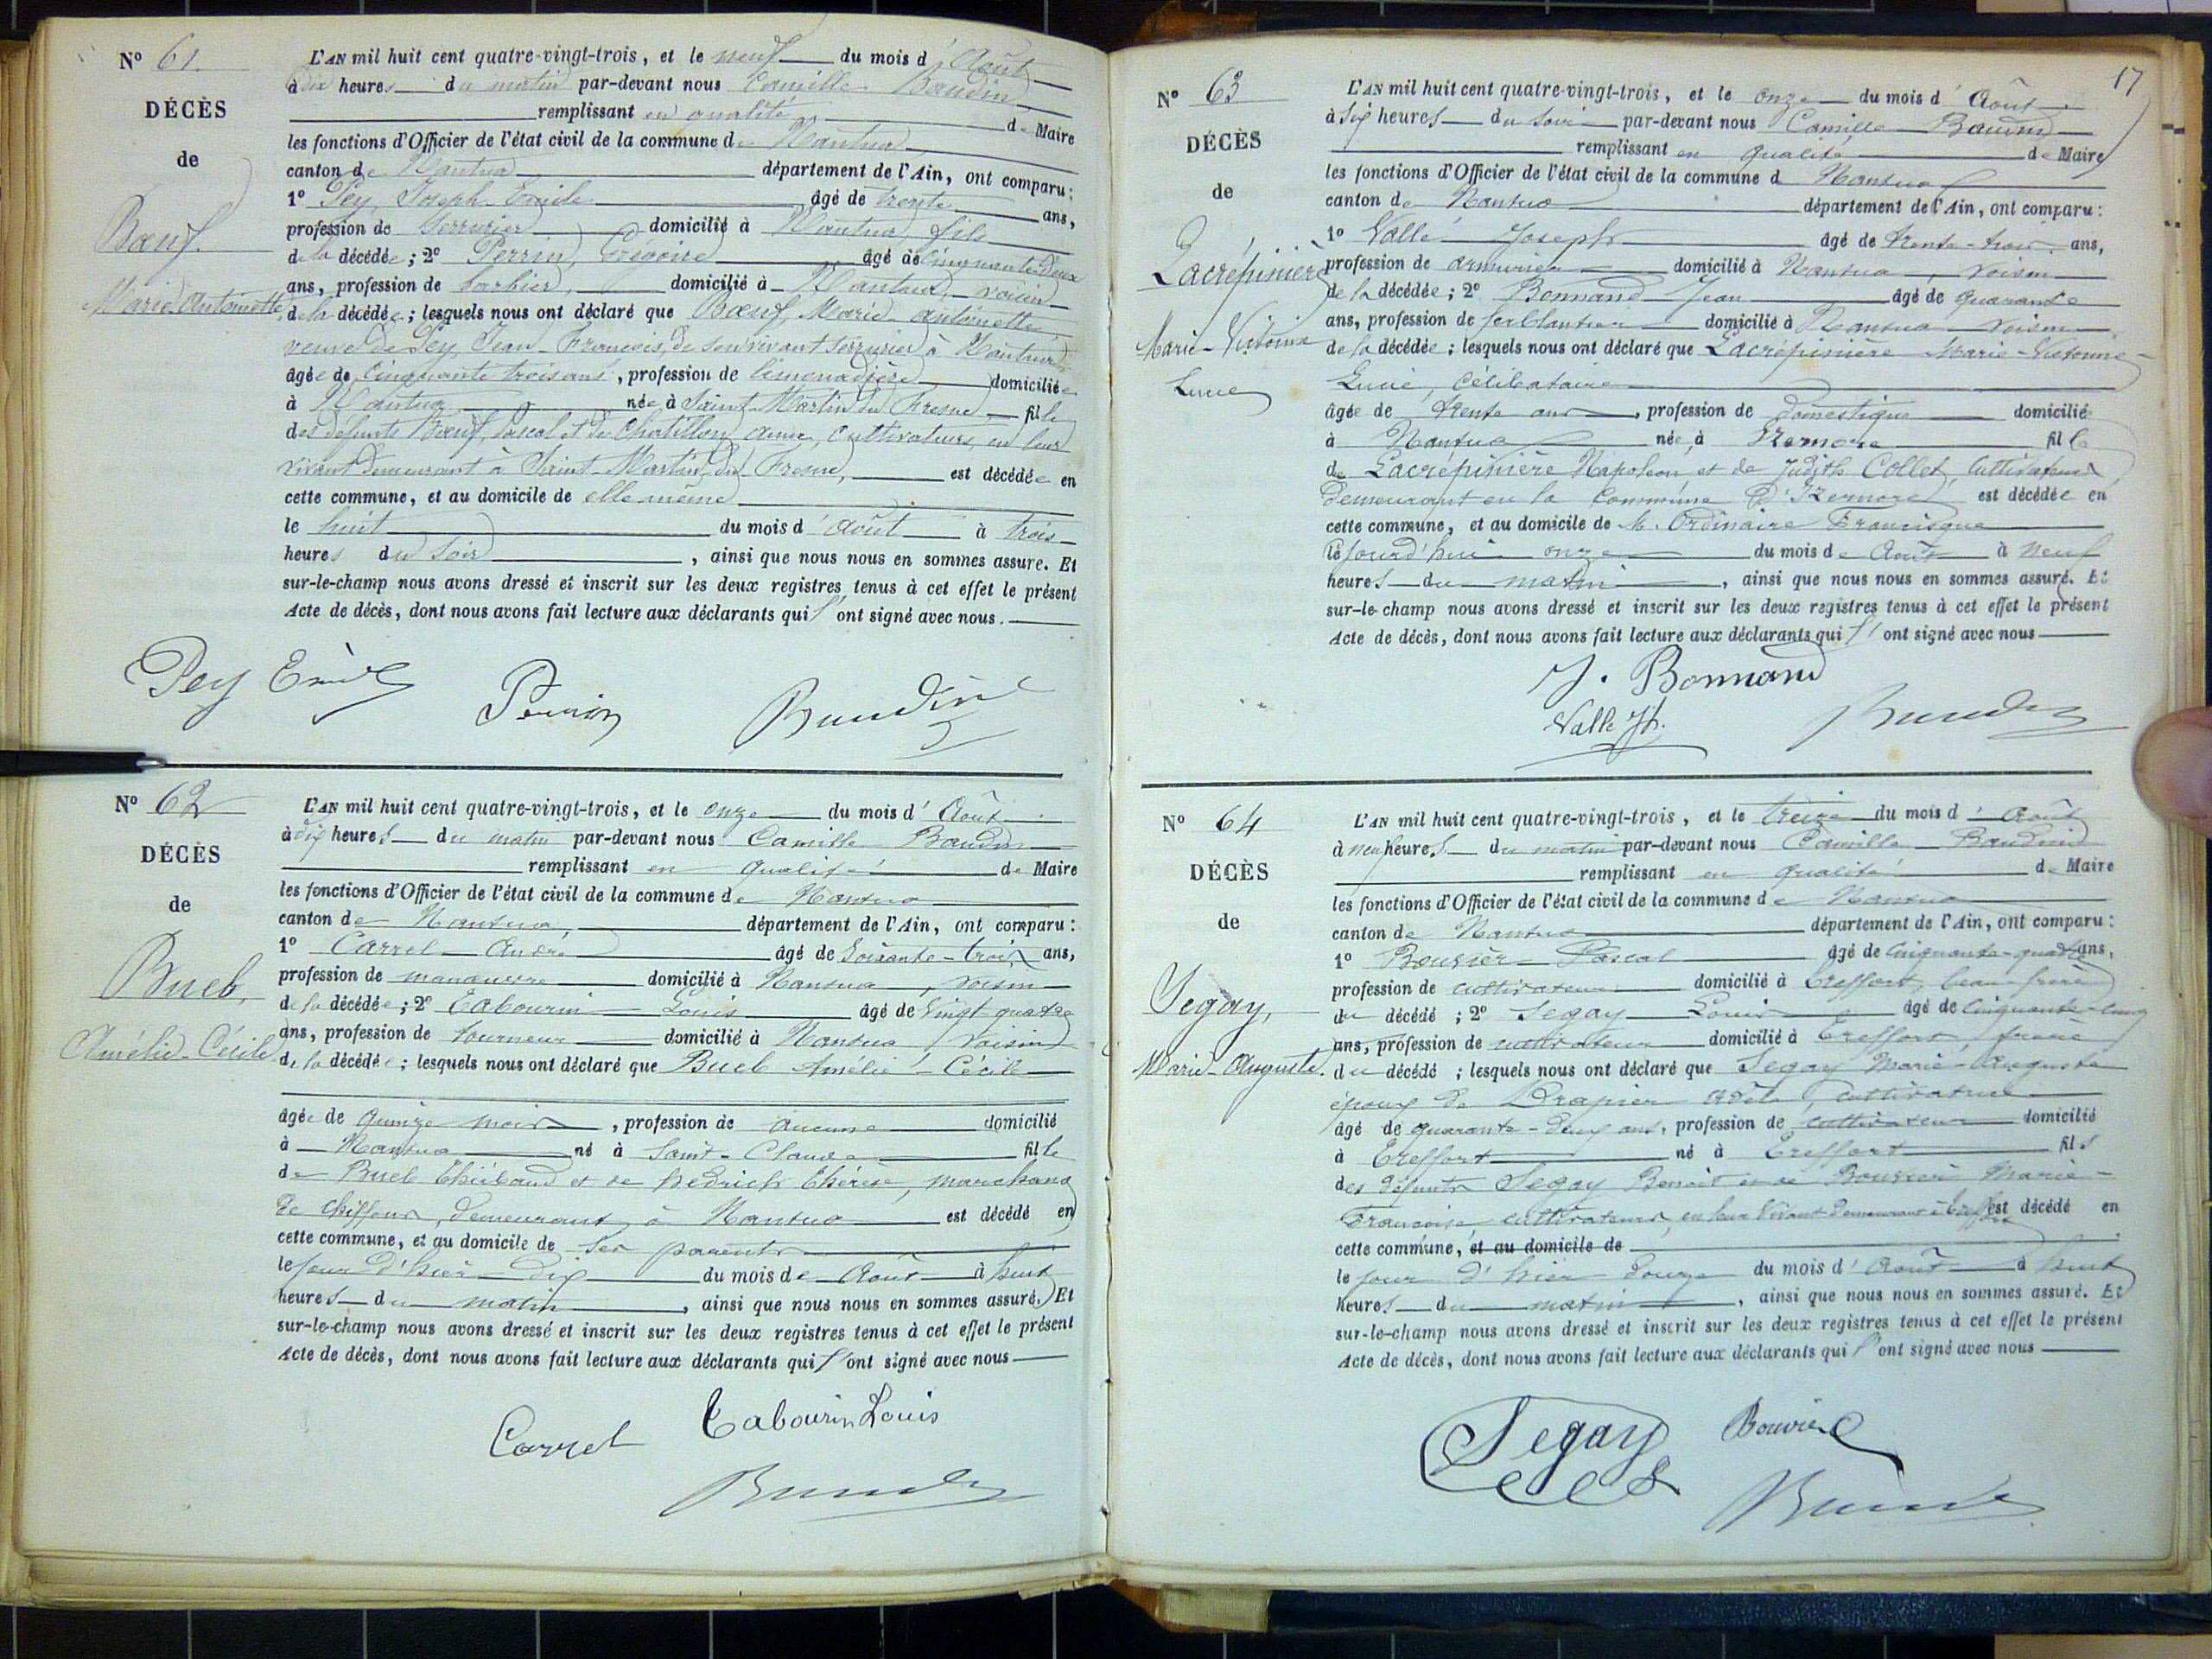 N° 61.
DÉCÈS
de
Bœuf.
Marie Antoinette
L'AN mil huit cent quatre-vingt-trois, et le neuf du mois d'Août
à dix heures du matin par-devant nous Camille Baudin
remplissant en qualité de Maire
les fonctions d'Officier de l'état civil de la commune de Nantua
canton de Nantua département de l'Ain, ont comparu :
1° Pey, Joseph Emile âgé de trente ans,
profession de serrurier domicilié à Nantua fils
de la décédée ; 2° Perrin, Grégoire âgé de cinquante deux
ans, profession de barbier, domicilié à Nantua, voisin
de la décédée ; lesquels nous ont déclaré que Bœuf, Marie antoinette
veuve de Pey, Jean-François, de son vivant serrurier à Nantua
âgée de cinquante trois ans, profession de limonadière domiciliée
à Nantua née à Saint-Martin du Fresne, fille
des défunts Bœuf, Pascal et de Chatillon anne, cultivateurs, en leur
vivant demeurant à Saint-Martin du Fresne, est décédée en
cette commune, et au domicile de elle même
le huit du mois d'août à trois
heures du soir, ainsi que nous nous en sommes assuré. Et
sur-le-champ nous avons dressé et inscrit sur les deux registres tenus à cet effet le présent
Acte de décès, dont nous avons fait lecture aux déclarants qui l'ont signé avec nous.
Pey Emile Perrin Baudin
N° 62
DÉCÈS
de
Bueb,
Amélie-Cécile
L'AN mil huit cent quatre-vingt-trois, et le onze du mois d'Août
à dix heures du matin par-devant nous Camille Baudin
remplissant en qualité de Maire
les fonctions d'Officier de l'état civil de la commune de Nantua
canton de Nantua, département de l'Ain, ont comparu :
1° Carrel André âgé de soixante-trois ans,
profession de manœuvre domicilié à Nantua, voisin
de la décédée ; 2° Tabourin Louis âgé de vingt quatre
ans, profession de tourneur domicilié à Nantua, voisin
de la décédée ; lesquels nous ont déclaré que Bueb Amélie-Cécile
âgée de quinze mois, profession de aucune domicilié
à Nantua né à Saint-Claude fille
de Bueb Thiébaud et de hédrich Thérèse, marchand
de chiffons, demeurant à Nantua est décédé en
cette commune, et au domicile de ses parents
le jour d'hier dix du mois de Août à huit
heures du matin, ainsi que nous nous en sommes assuré. Et
sur-le-champ nous avons dressé et inscrit sur les deux registres tenus à cet effet le présent
Acte de décès, dont nous avons fait lecture aux déclarants qui l'ont signé avec nous
Carrel Tabourin Louis
Baudin
17
N° 63
DÉCÈS
de
Lacrépinière
Marie-Victorine
Lucie
L'AN mil huit cent quatre-vingt-trois, et le onze du mois d'Août
à six heures du soir par-devant nous Camille Baudin
remplissant en qualité de Maire
les fonctions d'Officier de l'état civil de la commune d Nantua
canton de Nantua département de l'Ain, ont comparu :
1° Vallé Joseph âgé de trente-trois ans,
profession de armurier domicilié à Nantua, voisin
de la décédée ; 2° Bonnand Jean âgé de quarante
ans, profession de ferblantier domicilié à Nantua voisin
de la décédée ; lesquels nous ont déclaré que Lacrépinière Marie-Victorine-
Lucie, célibataire
âgée de trente ans, profession de domestique domicilié
à Nantua née, à Izernore fille
de Lacrépinière Napoléon et de Judith Collet, cultivateurs
demeurant en la commune d'Izernore est décédée en
cette commune, et au domicile de M. Ordinaire Francisque
le jourd'hui onze du mois de Août à neuf
heures du matin, ainsi que nous nous en sommes assuré. Et
sur-le-champ nous avons dressé et inscrit sur les deux registres tenus à cet effet le présent
Acte de décès, dont nous avons fait lecture aux déclarants qui l'ont signé avec nous
J. Bonnand
Vallé Jh. Baudin
N° 64
DÉCÈS
de
Segay,
Marie-Auguste.
L'AN mil huit cent quatre-vingt-trois, et le treize du mois d'Août
à neuf heures du matin par-devant nous Camille Baudin
remplissant en qualité de Maire
les fonctions d'Officier de l'état civil de la commune de Nantua
canton de Nantua département de l'Ain, ont comparu :
1° Bouvier Pascal âgé de cinquante-quatre ans,
profession de cultivateur domicilié à Treffort, beau-frère
du décédé ; 2° Segay Louis âgé de cinquante-cinq
ans, profession de cultivateur domicilié à Treffort, frère
du décédé ; lesquels nous ont déclaré que Segay Marie-Auguste
époux de Drapier Adèle, cultivatrice
âgé de quarante-deux ans, profession de cultivateur domicilié
à Treffort né à Treffort fils
des défunts Segay Benoit et de Bouvier Marie-
Françoise, cultivateurs, en leur vivant demeurant à Treffort est décédé en
cette commune, et au domicile de
le jour d'hier douze du mois d'Août à huit
heures du matin, ainsi que nous nous en sommes assuré. Et
sur-le-champ nous avons dressé et inscrit sur les deux registres tenus à cet effet le présent
Acte de décès, dont nous avons fait lecture aux déclarants qui l'ont signé avec nous
Segay Bouvier
Baudin